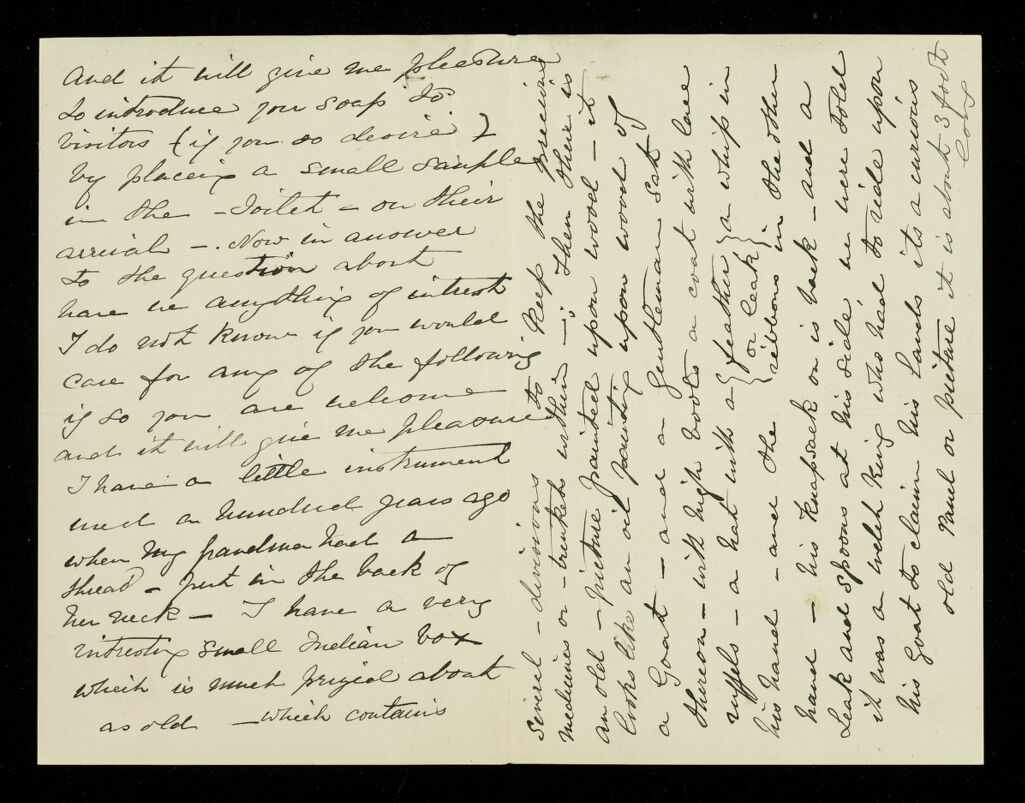 And it will give me pleasure
to introduce your soap to
visitors (if you so desire)
by placeing a small sample
in the - Toilet - on their
arrival -. Now in answer
to the question about
have we anything of intrest
I do not know if you would
care for any of the following
if so you are welcome
and it will give me pleasure
I have a little instrument
used a hundred years ago
when my Grandma had a
thread - put in the back of
her neck - I have a very
intresting small Indian box
which is much prized about
as old - which contains
several - divisions to keep the precious
medicines or - trinkets within -; then their is
an old - picture painted upon wood - it
looks like an oil painting upon wood of
a Goat - and a Gentleman sat
thereon - with high boots a coat with lace
ruffels - a hat with a { feather } a whip in
{ or leak }
his hand - and the ribbons in the other
hand - his knapsack on is back - and a
Leak and spoons at his side we were told
it was a welsh king who had to ride upon
his Goat to claim his lands its a curious
old Panel or picture it is about 3 foot
long